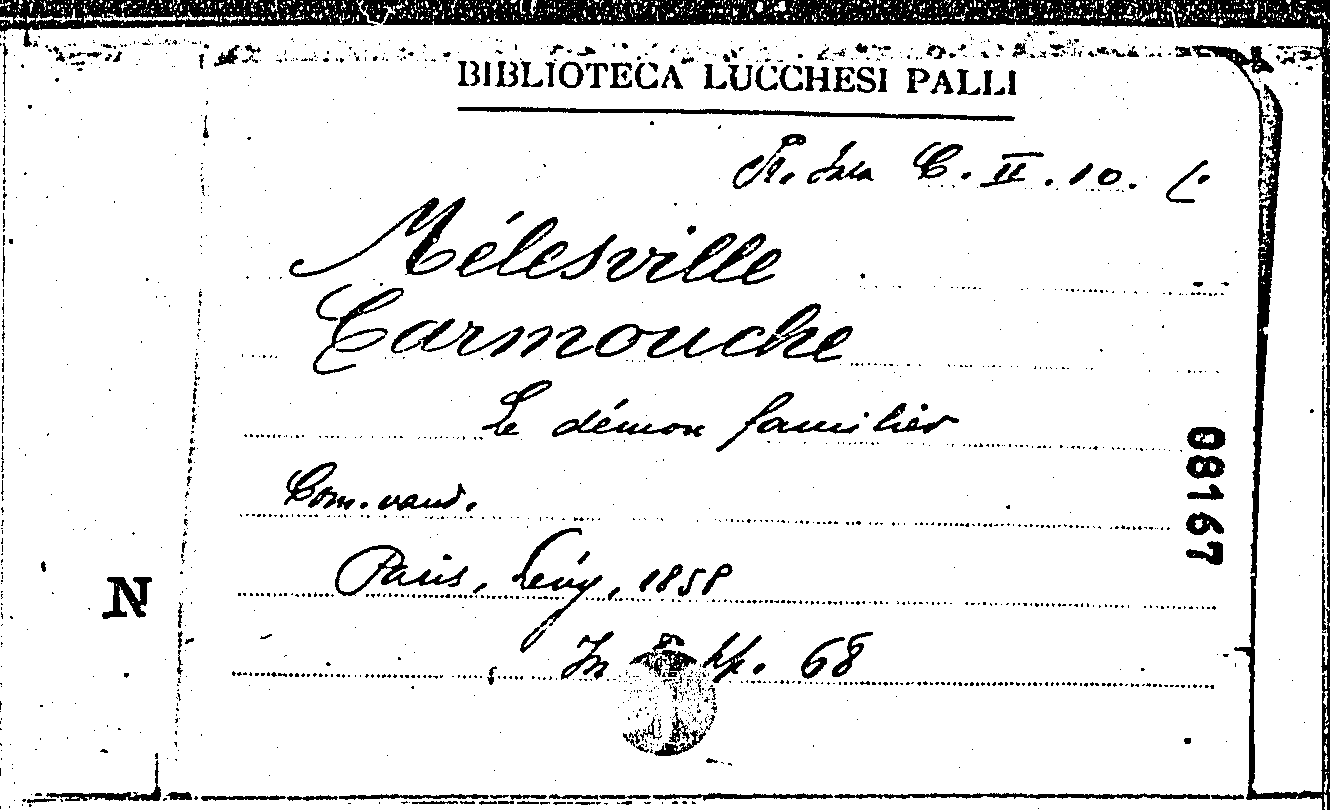 BIBLIOTECA LUCCHESI PALLI
C. II. 10.
Mélesville
Carmouche
Le démon familier
Com. vaud.
Paris, Lévy, 1858
In 8 pp. 68
N
08167